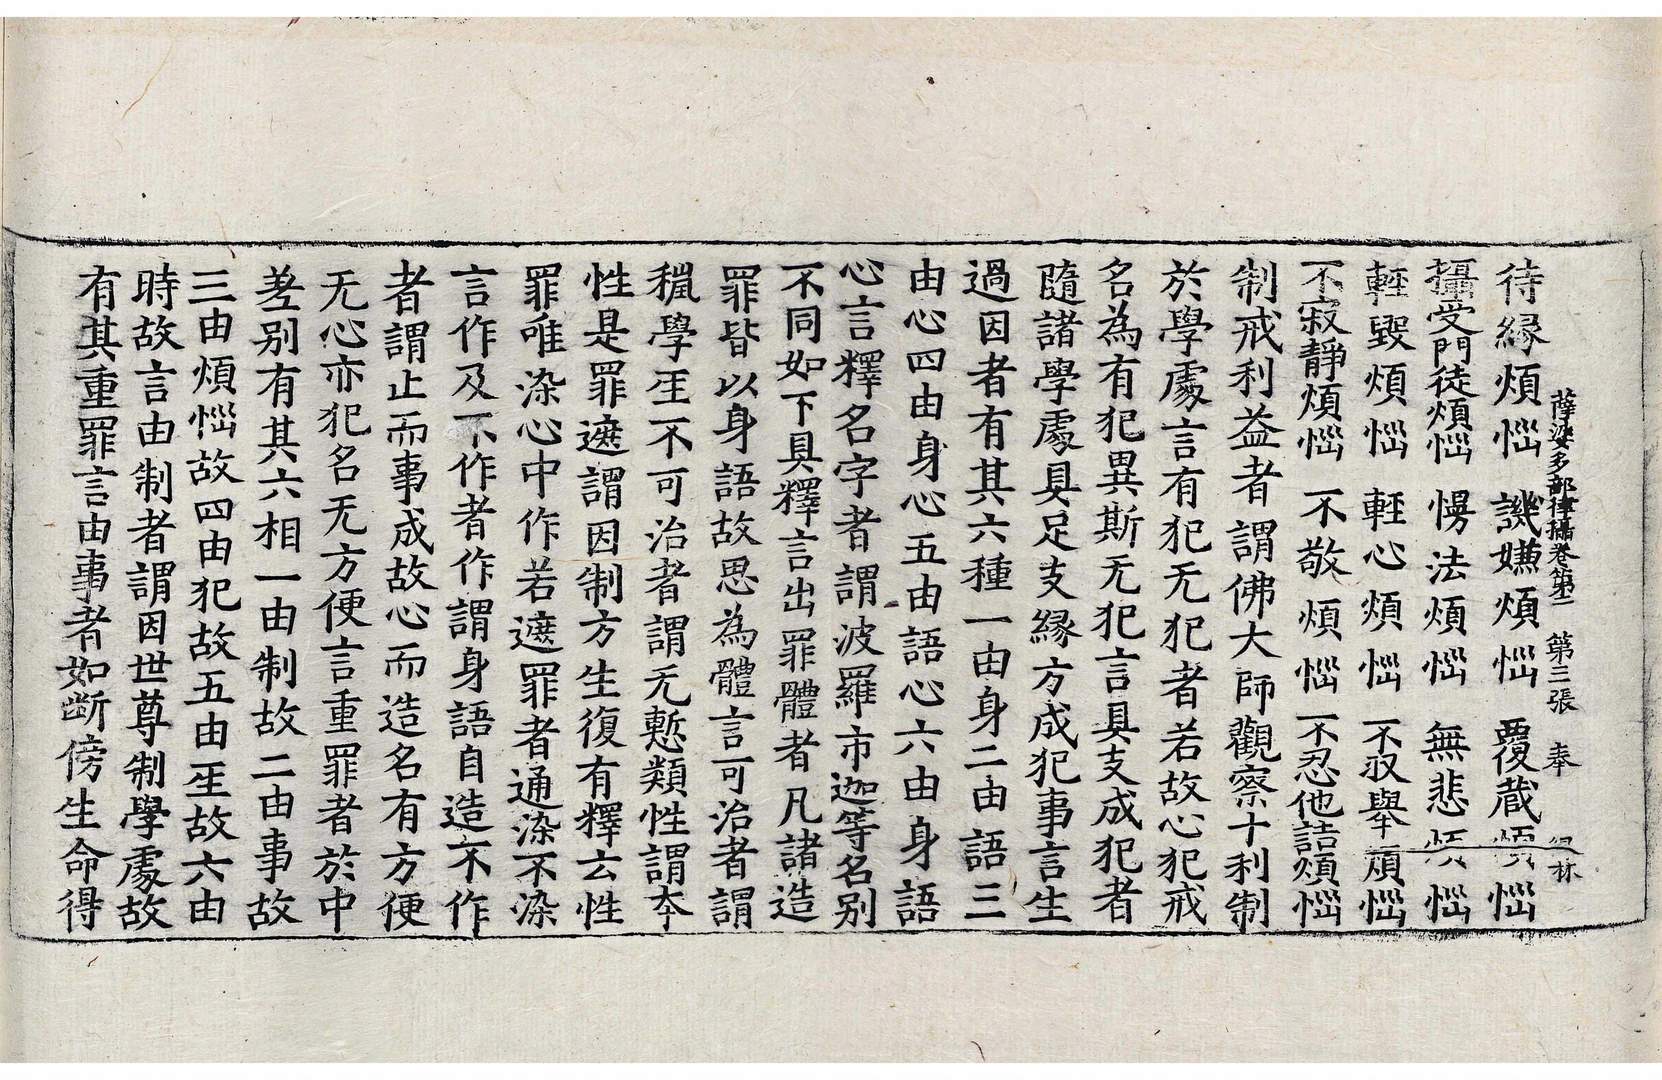 薩婆多部律攝卷第一 第三張 奉
待縁煩惱 譏嫌煩惱 覆蔵煩惱
攝受門徒煩惱 愣法煩惱 無悲煩惱
輕毀煩惱 輕心煩惱 不収舉煩惱
不寂靜煩惱 不敬煩惱 不忍他詰煩惱
制戒利益者謂佛大師觀察十利制
於學處言有犯无犯者若故心犯戒
名為有犯異斯无犯言具支成犯者
隨諸學處具足支縁方成犯事言生
過因者有其六種一由身二由語三
由心四由身心五由語心六由身語
心言釋名字者謂波羅市迦等名別
不同如下具釋言出罪體者凡諸造
罪皆以身語故思為體言可治者謂
穢學坒不可治者謂无慙類性謂夲
性是罪遮謂因制方生復有釋云性
罪唯染心中作若遮罪者通染不染
言作及不作者作謂身語自造不作
者謂止而事成故心而造名有方便
无心亦犯名无方便言重罪者於中
差别有其六相一由制故二由事故
三由煩惱故四由犯故五由坒故六由
時故言由制者謂因世尊制學處故
有其重罪言由事者如断傍生命得